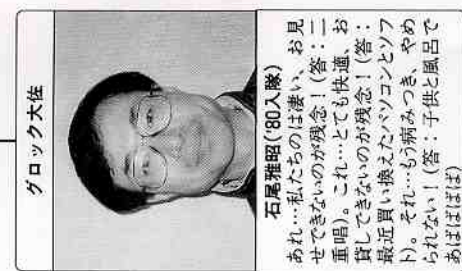 グロック大佐
石尾雅昭('80入隊)
あれ…私たちのは凄い、お見
せできないのが残念！(答：二
重唱)。これ…とても快適、お
貸しできないのが残念！(答：
最近買い換えたパソコンとソフ
ト)。それ…もう病みつき、やめ
られない！(答：子供と風呂で
あばばばば)